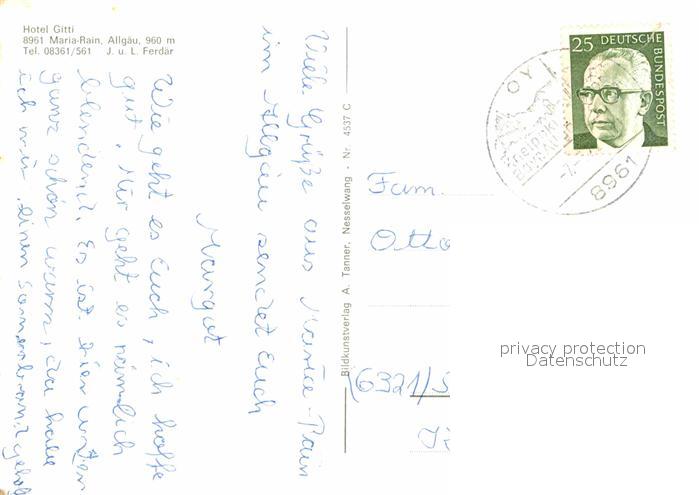 Hotel Gitti
8961 Maria-Rain, Allgäu, 960 m
Tel. 08361/561 J. u. L. Ferdär
Viele Grüße aus Maria-Rain
im Allgäu sendet Euch
Margot
Wie geht es Euch, ich hoffe
gut. Mir geht es nämlich
blendend. Es ist hier unten
ganz schön warm, da habe
ich mir einen Sonnenbrand geholt
Bildkunstverlag A. Tanner, Nesselwang · Nr. 4537 C
25 DEUTSCHE BUNDESPOST
OY
8961
Fam.
Otto
(6321)
privacy protection
Datenschutz